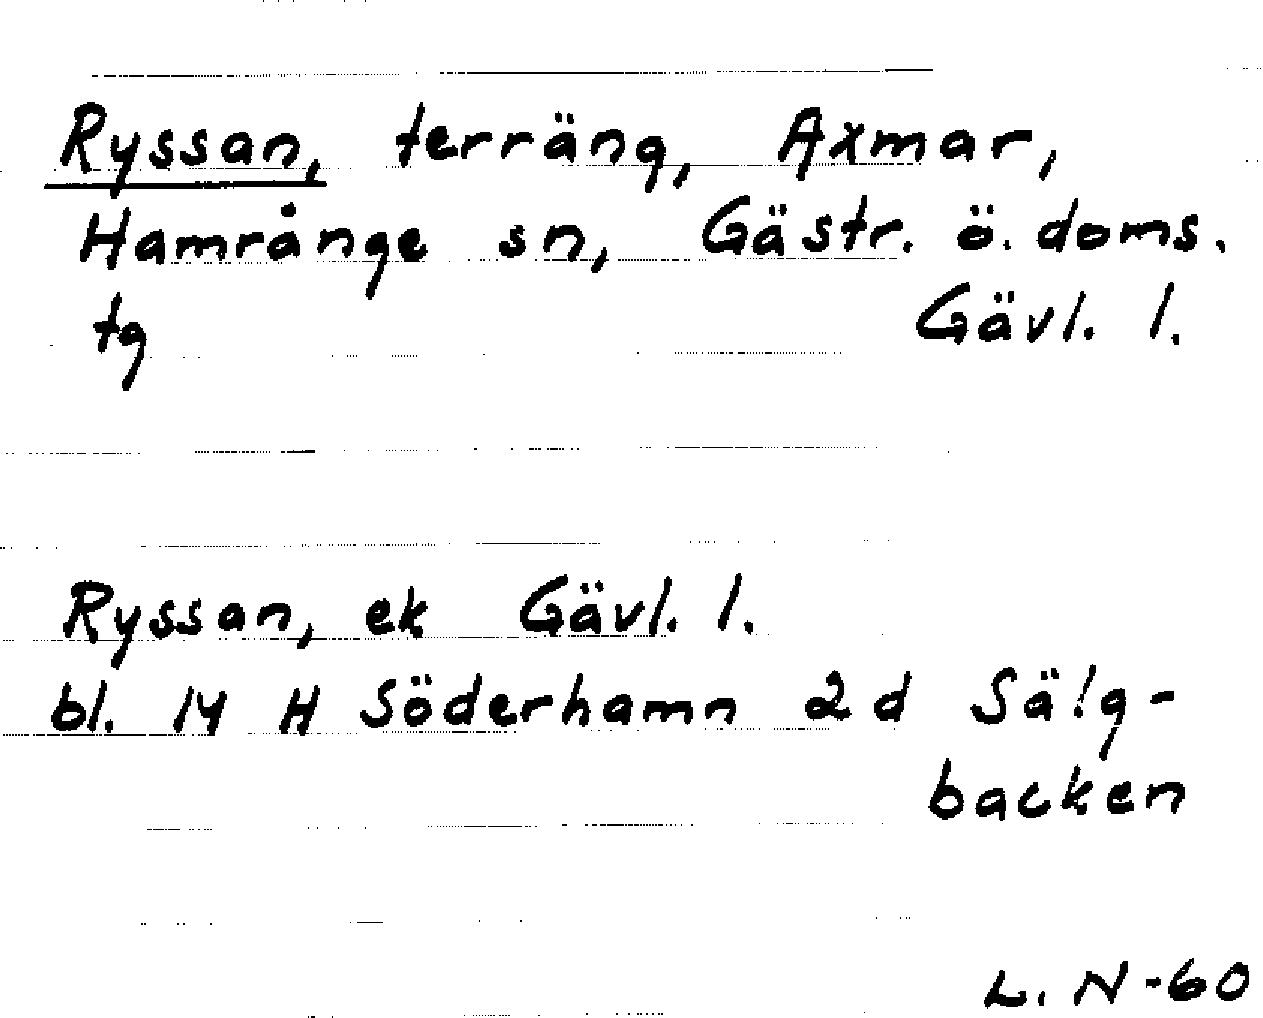 Ryssan, terräng, Axmar,
Hamrånge sn, Gästr. ö. doms.
tg Gävl. l.
Ryssan, ek Gävl. l.
bl. 14 H Söderhamn 2 d Sälg-
backen
L. N-60